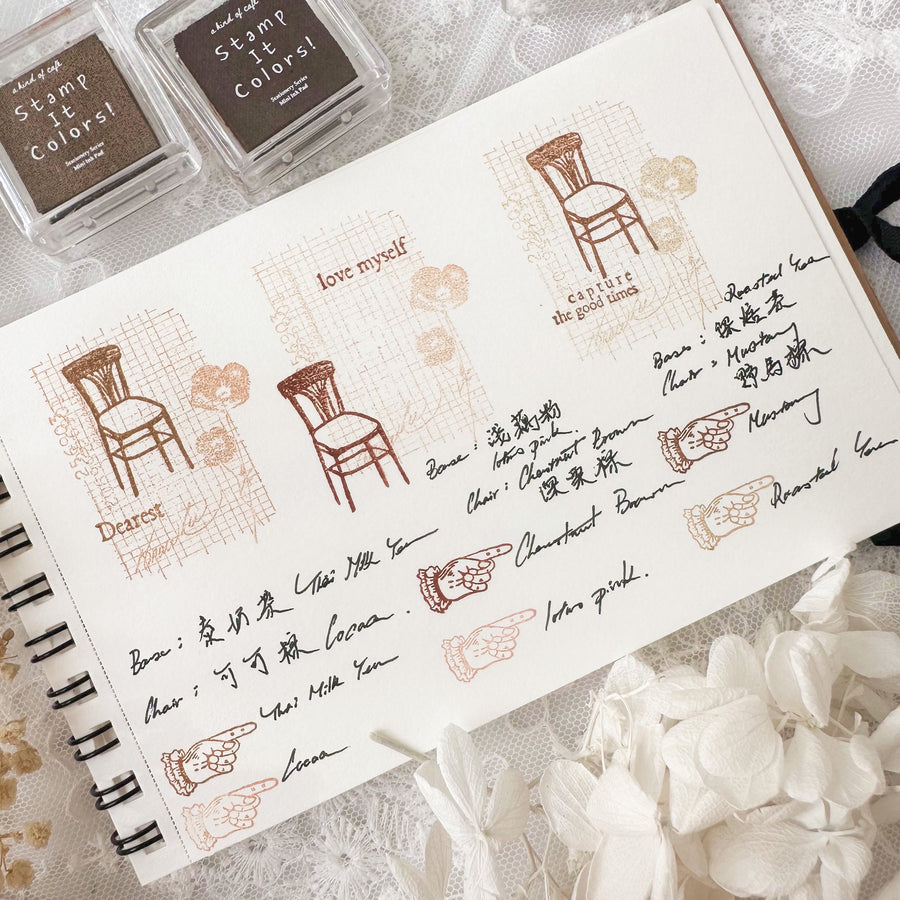 a kind of café
Stamp
It
Colors!
Stationery Series
Mini Ink Pad
a kind of café
Stamp
It
Colors!
Stationery Series
Mini Ink Pad
Dearest
love myself
capture
the good times
Base: 泰奶茶 Thai Milk Tea
Chair: 可可棕 Cocoa.
Thai Milk Tea
Cocoa
Base: 淺藕粉
lotus pink.
Chair: Chestnut Brown
深栗棕
Chestnut Brown
lotus pink.
Roasted Tea
Base: 焙茶
Chair: Mustang
野馬棕
Mustang
Roasted Tea